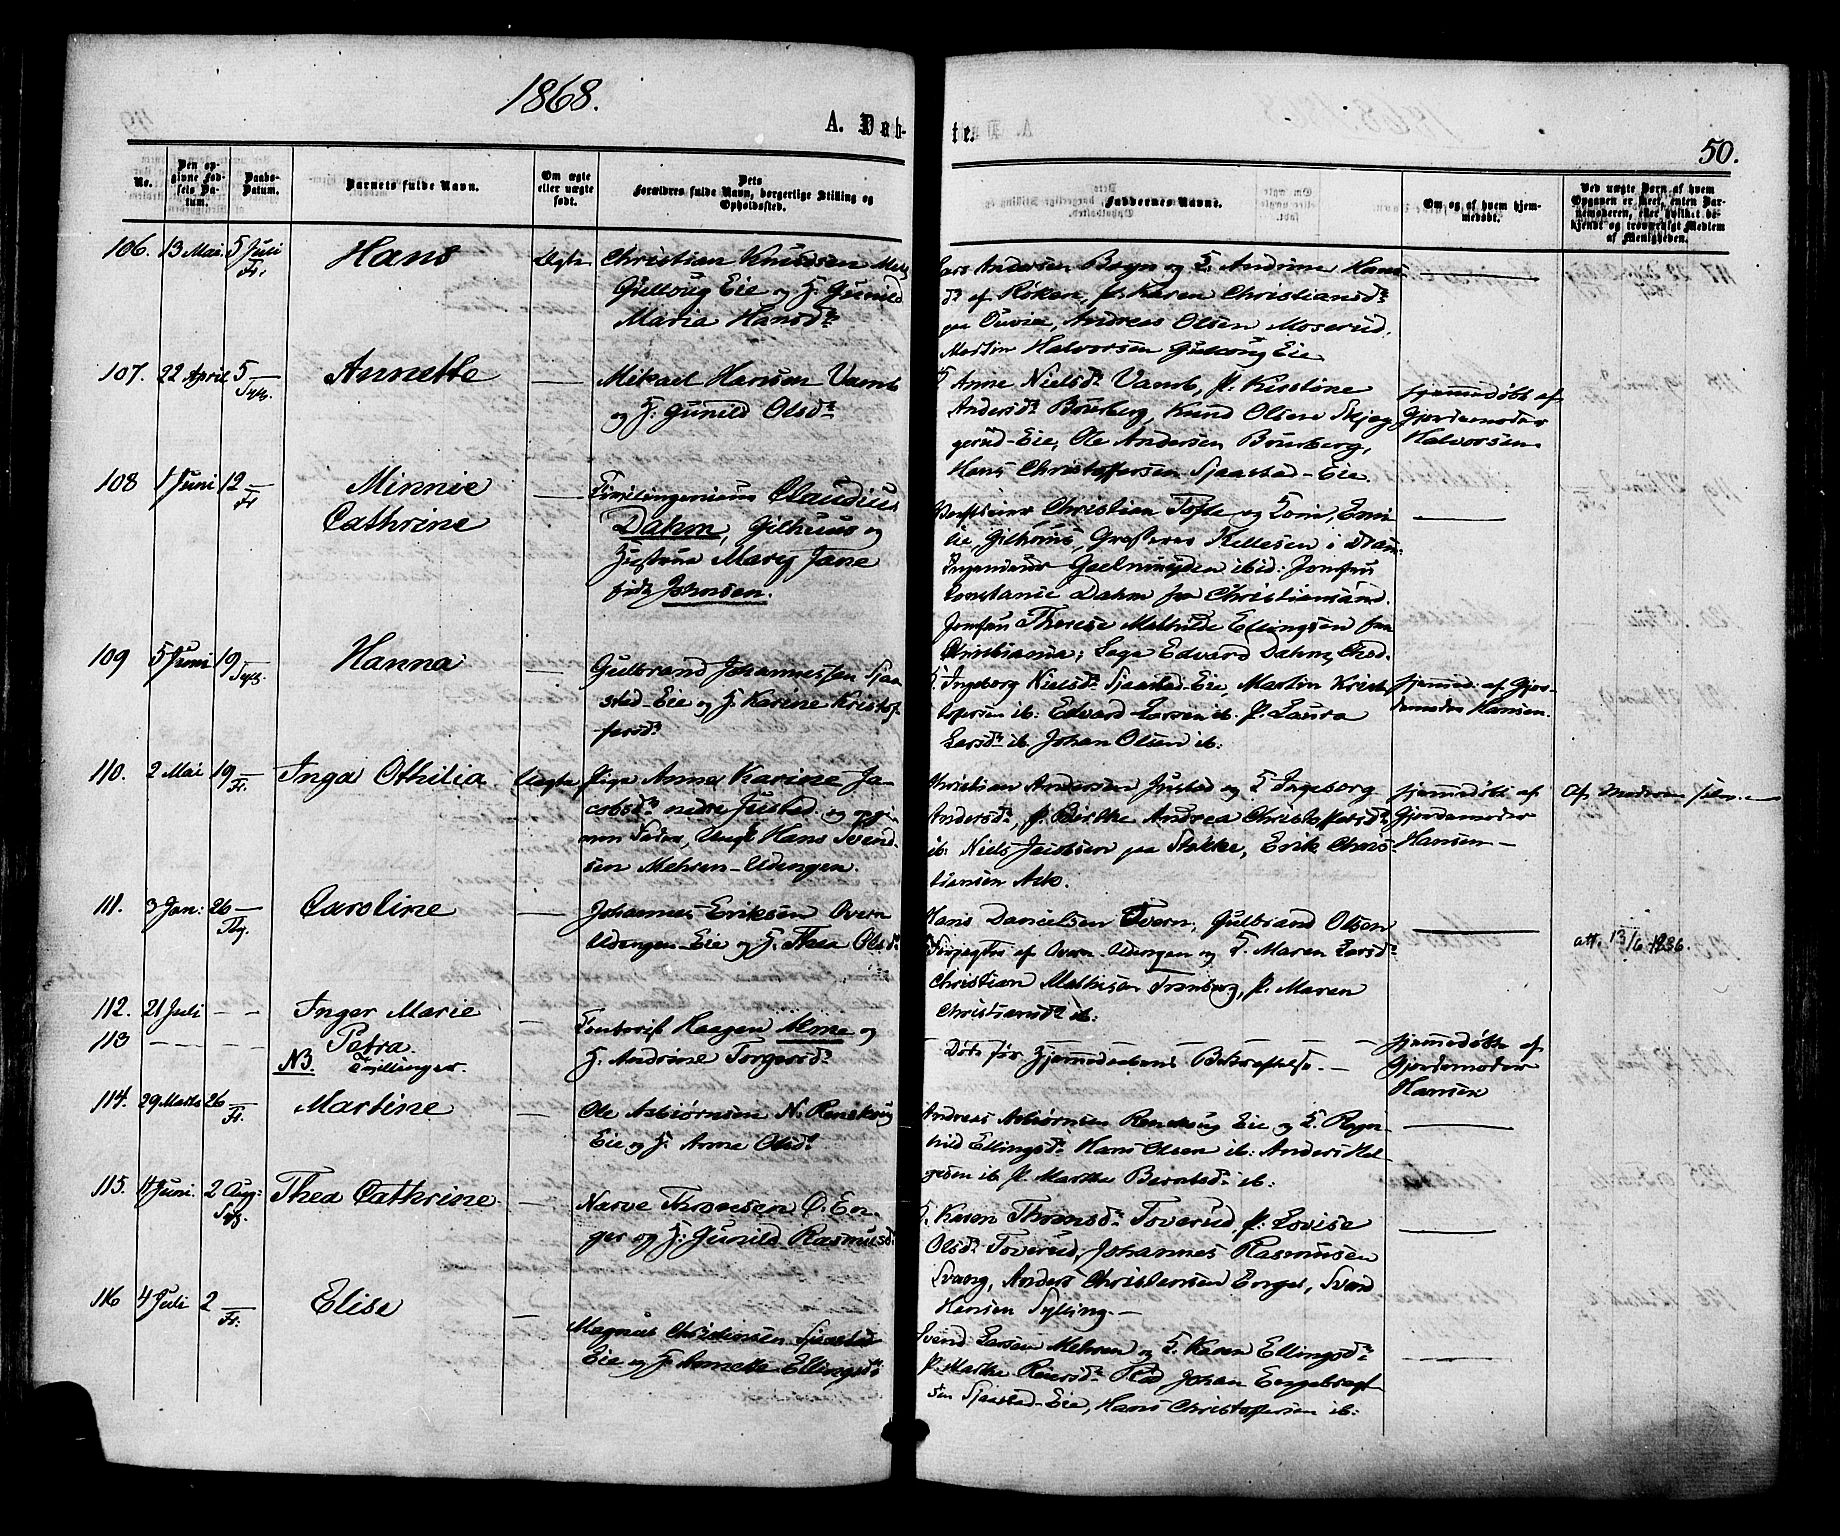 1868.
A. Døb-
te.
50.
No.
Den op-
givne Fød-
sels Da-
tum.
Daabs-
Datum.
Barnets fulde Navn.
Om ægte
eller uægte
født.
Dets
Forældres fulde Navn, borgerlige Stilling og
Opholdssted.
Faddernes Navne.
Om og af hvem hjem-
medøbt.
Ved uægte Børn af hvem
Opgaven er skeet, enten Bar-
nemoderen, eller hvilket be-
kjendt og troværdigt Medlem
af Menigheden.
106. 13 Mai. 5 Juli Fr. Hans Ægte Christian Knudsen
Gulloug Eie og H. Gunild
Maria Hansdr
Lars Andersen Bøgn og H. Andrine Hans
dr af Røken, P. Karen Christiansdr
paa Ouvie, Andreas Olsen Moserud,
Martin Halvorsen Gulloug Eie
107. 22 April 5 — Sylg. Annette — Mikael Hansen Vamb
og H. Gunild Olsdr
Anne Nielsdr Vamb, P. Kirstine
Andersdr Bourberg, Knud Olsen Skjeg
gerud-Eie, Ole Andersen Bourberg,
Hans Christoffersen Sjaastad-Eie.
hjemmedøbt af
Gjordemoder
Halvorsen
108 1 Juni 12 — Fr. Minnie
Cathrine — Civilingenieur Claudius
Dahm, Gilhuus og
Hustru Mary Jane
født Johnsen.
Christian Tofte og Emi-
lie, Gilhuus, Kittelsen i Dram.
Ingenieur Geelmuyden ibid: Jomfru
Constance Dahm fra Christiansand.
Jomfru Therese Mathilde Ellingsen fra
Christiania; Edvard Dahm,
109 5 Juni 19 — Sylg. Hanna — Gulbrand Johannessen Sjaa-
stad-Eie og H. Karine Kristof-
fersdr
H. Ingeborg Nielsdr Sjaastad-Eie, Martin Krist
tofersen ib: Edvard Larsen ib. P. Laura
Larsdr ib. Johan Olsen ib:
hjemmed: af Gjor-
demoder Hansen.
110. 2 Mai 19 — Fr. Inga Othilia Uægte Pige Anna Karine Ja-
cobsdr nedre Justad og
Fader, Ungk Hans Svend-
sen Mehren-Udengen.
Christian Andersen Justad og H. Ingeborg
Andersdr, P. Birthe Andrea Christoffersdr
ib: Niels Jacobsen paa Stokke, Erik Chris-
tiansen Ask.
hjemmedøbt af
Gjordemoder
Hansen —
Af Moderen selv. —
111. 3 Jan: 26 — Tlg. Caroline — Johannes Eriksen Overn
Udengen-Eie og H. Thea Olsdr
Hans Danielsen Overn, Gulbrand Olsen
Forpagter af Overn-Udengen og H. Maren Larsdr
Christian Mathisen Tronberg, P. Maren
Christiansdr ib:
att. 13/6 1886.
112. 21 Juli — — Inger Marie
113 — — — Petra
NB. Tvillinger.
— Haagen Alme og
H. Andrine Torgersdr
— Døde før Hjemmedaabens Bekræftelse. —
hjemmedøbte af
Gjordemoder
Hansen
114. 29 Marts 26 — Fr. Martine — Ole Asbiørnsen N. Renskoug
Eie og H. Anne Olsdr
Andreas Asbiørnsen Renskoug Eie og H. Ragn-
hild Ellingsdr Hans Olsen ib: Anders Hel-
gesen ib P. Marthe Berntsdr ib:
115. 11 Juni. 2 Aug: Sylg. Thea Cathrine — Narve Thronsen Ø. En-
ger og H: Gunild Rasmusdr
H. Karen Thronsdr Toverud, P: Lovise
Olsdr Toverud, Johannes Rasmusen
Svang, Anders Christensen Enger, Svend
Hansen Sylling. —
116 4 Juli 2 — Fr. Elise — Magnus Christensen Sjaastad
Eie og H. Annette Ellingsdr
Svend Larsen Mehren og H. Karen Ellingsdr
P. Marthe Reiersdr Rød Johan Engebregt-
sen Sjaastad-Eie, Hans Christoffersen ib: